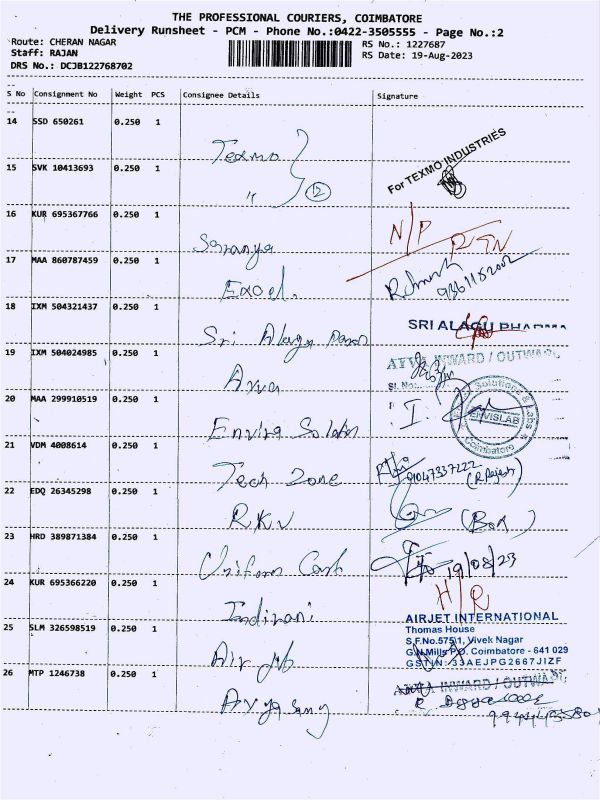 THE PROFESSIONAL COURIERS, COIMBATORE
Delivery Runsheet - PCM - Phone No.:0422-3505555 - Page No.:2
Route: CHERAN NAGAR
RS No.: 1227687
Staff: RAJAN
RS Date: 19-Aug-2023
DRS No.: DCJB122768702
S No Consignment No Weight PCS Consignee Details Signature
14 SSD 650261 0.250 1 Texmo
For TEXMO INDUSTRIES
15 SVK 10413693 0.250 1 " 12
16 KUR 695367766 0.250 1 Saranya N/P RTN
17 MAA 860787459 0.250 1 Excel.
18 IXM 504321437 0.250 1 Sri Alagu
SRI ALAGU PHARMA
19 IXM 504024985 0.250 1
INWARD / OUTWARD
Sl. No.:
20 MAA 299910519 0.250 1 Envira
Solutions & Labs
ENVISLAB
Coimbatore
21 VDM 4008614 0.250 1 Tech Zone
(R Rajesh)
22 EDQ 26345298 0.250 1 RKV
23 HRD 389871384 0.250 1 Uniform 19/08/23
24 KUR 695366220 0.250 1 Indirani H/R
AIRJET INTERNATIONAL
Thomas House
S.F.No.575\1, Vivek Nagar
G.N.Mills P.O. Coimbatore - 641 029
GSTIN: 33AEJPG2667J1ZF
25 SLM 326598519 0.250 1 Air
26 MTP 1246738 0.250 1
INWARD / OUTWARD